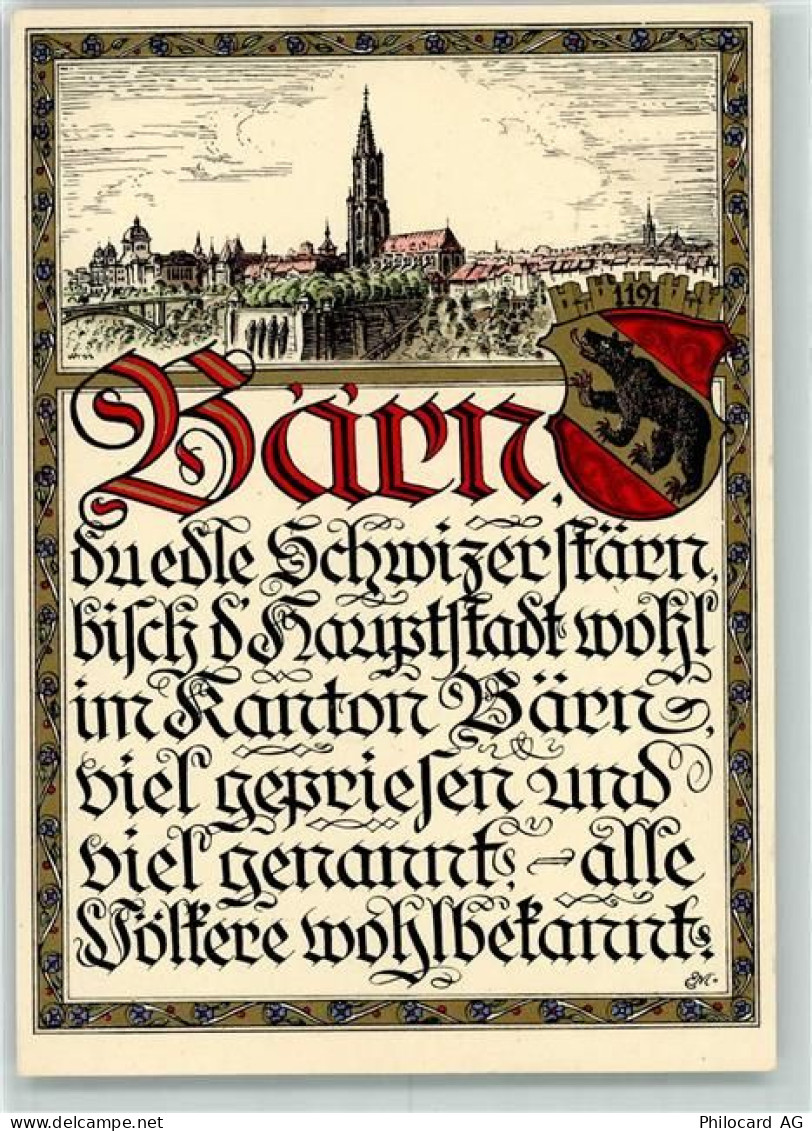 1191
Bärn,
du edle Schwizerstärn,
bisch d'Hauptstadt wohl
im Kanton Bärn,
viel gepriesen und
viel genannt, – alle
Völkere wohlbekannt.
EM.
Philocard AG